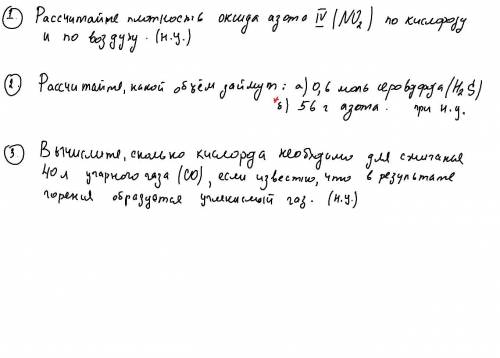 ① Рассчитайте плотность оксида азота IV (NO₂) по кислороду
и по воздуху. (н.у.)
② Рассчитайте, какой объём займут: а) 0,6 моль сероводорода (H₂S)
*б) 56 г азота. при н.у.
③ Вычислите, сколько кислорда необходимо для сжигания
40л угарного газа (CO), если известно, что в результате
горения образуется углекислый газ. (н.у.)